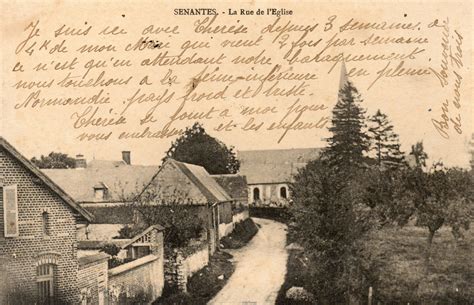 SENANTES. - La Rue de l'Eglise
Je suis ici avec Thérèse depuis 3 semaines, à
4 de mon mari qui vient 2 fois par semaine
ce n'est qu'en attendant notre baraquement
nous touchons à la Seine-inférieure en pleine
Normandie, pays froid et triste.
Thérèse se joint à moi pour
vous embrasser et les enfants
Bon Souvenir
de nous trois